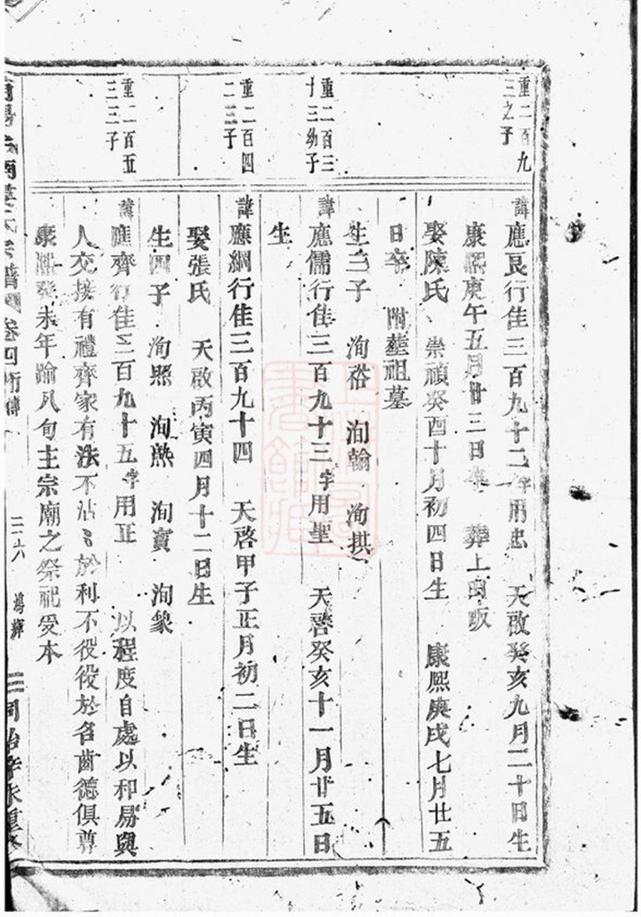 重二百九
三之子
諱應良行佳三百九十二字用忠 天啟癸亥九月二十日生
康熙庚午五月廿三日卒 葬上田畈
娶陳氏 崇禎癸酉十月初四日生 康熙庚戌七月廿五
日卒 附葬祖墓
生三子 洵裕 洵翰 洵拱
重二百三
十三幼子
諱應儒行佳三百九十三字用聖 天啓癸亥十一月廿五日
生
重二百四
二三子
諱應綱行佳三百九十四 天啓甲子正月初二日生
娶張氏 天啟丙寅四月十二日生
生四子 洵熙 洵熱 洵賓 洵象
重二百五
三三子
諱應齊行佳三百九十五字用正 以程度自處以和易與
人交接有禮齊家有法不沾沾於利不役役於名齒德俱尊
康熙癸未年踰八旬主宗廟之祭祀受本
宗譜 卷四行傳
二六
同治辛未重修